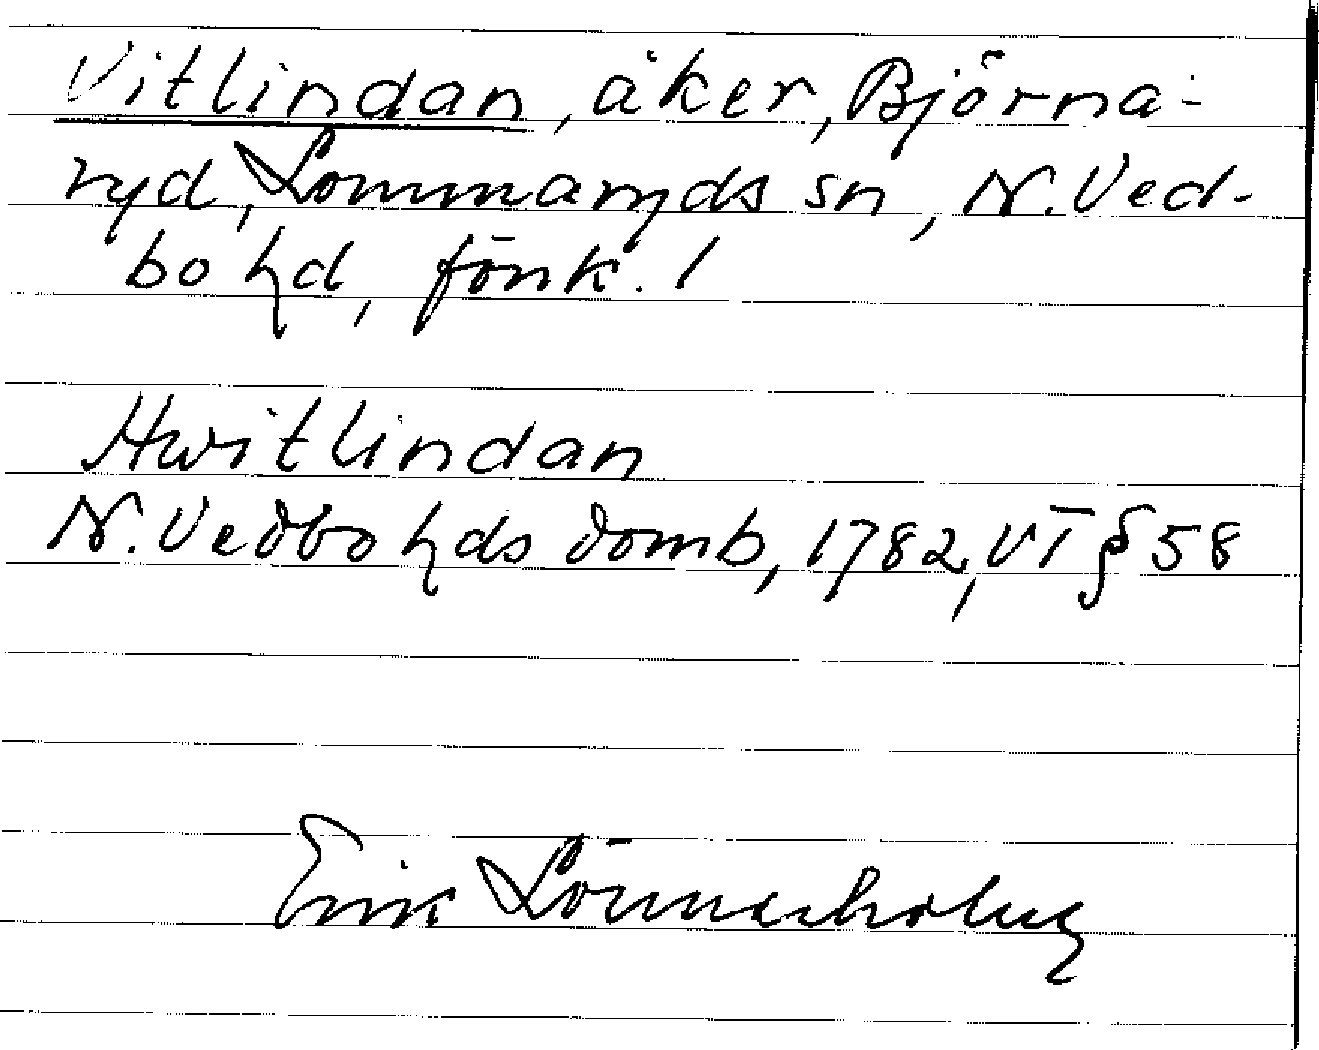 Vitlindan, åker, Björna-
ryd, Lommaryds sn, N. Ved-
bo hd, Jönk. l
Hwitlindan
N. Vedbo hds domb, 1782, VT § 58
Erik Lönnerholm